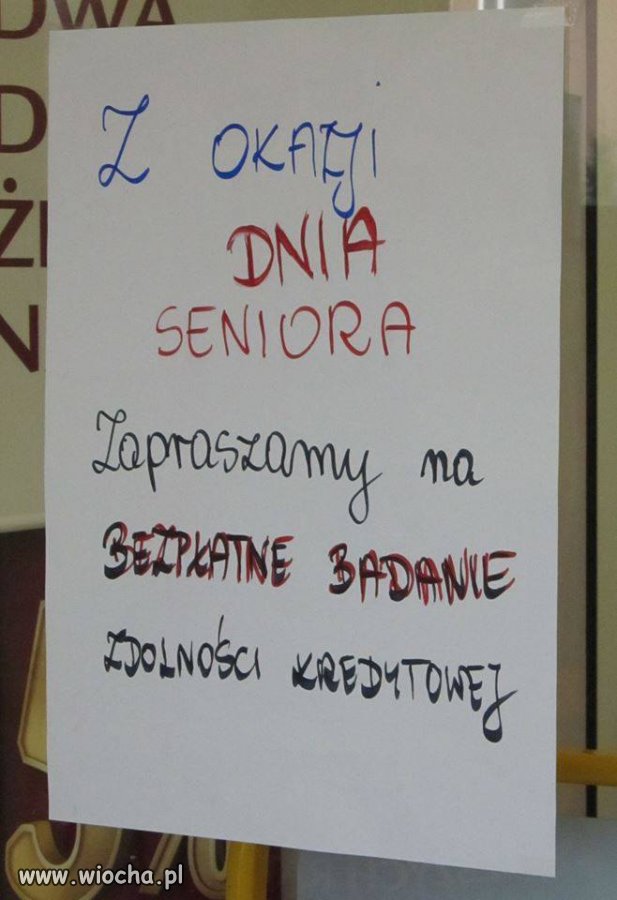 DWA
D
ŻE
N
Z OKAZJI
DNIA
SENIORA
Zapraszamy na
BEZPŁATNE BADANIE
ZDOLNOŚCI KREDYTOWEJ
www.wiocha.pl